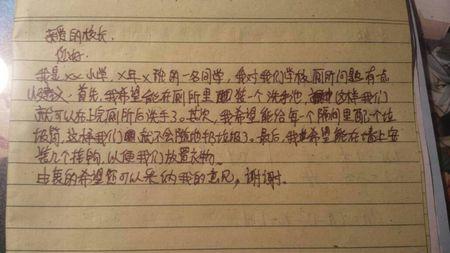 亲爱的校长.
你好.
我是xx小学,x年x班的一名同学,我对我们学校厕所问题有点
建议.首先,我希望能在厕所里装一个洗手池,这样我们
就可以在上完厕所后洗手了.其次,我希望能给每一个隔间里配个垃
圾筒,这样我们就不会随地扔垃圾了.最后,我希望能在墙上安
装几个挂钩,以便我们放置衣物.
由衷的希望您可以采纳我的意见,谢谢.